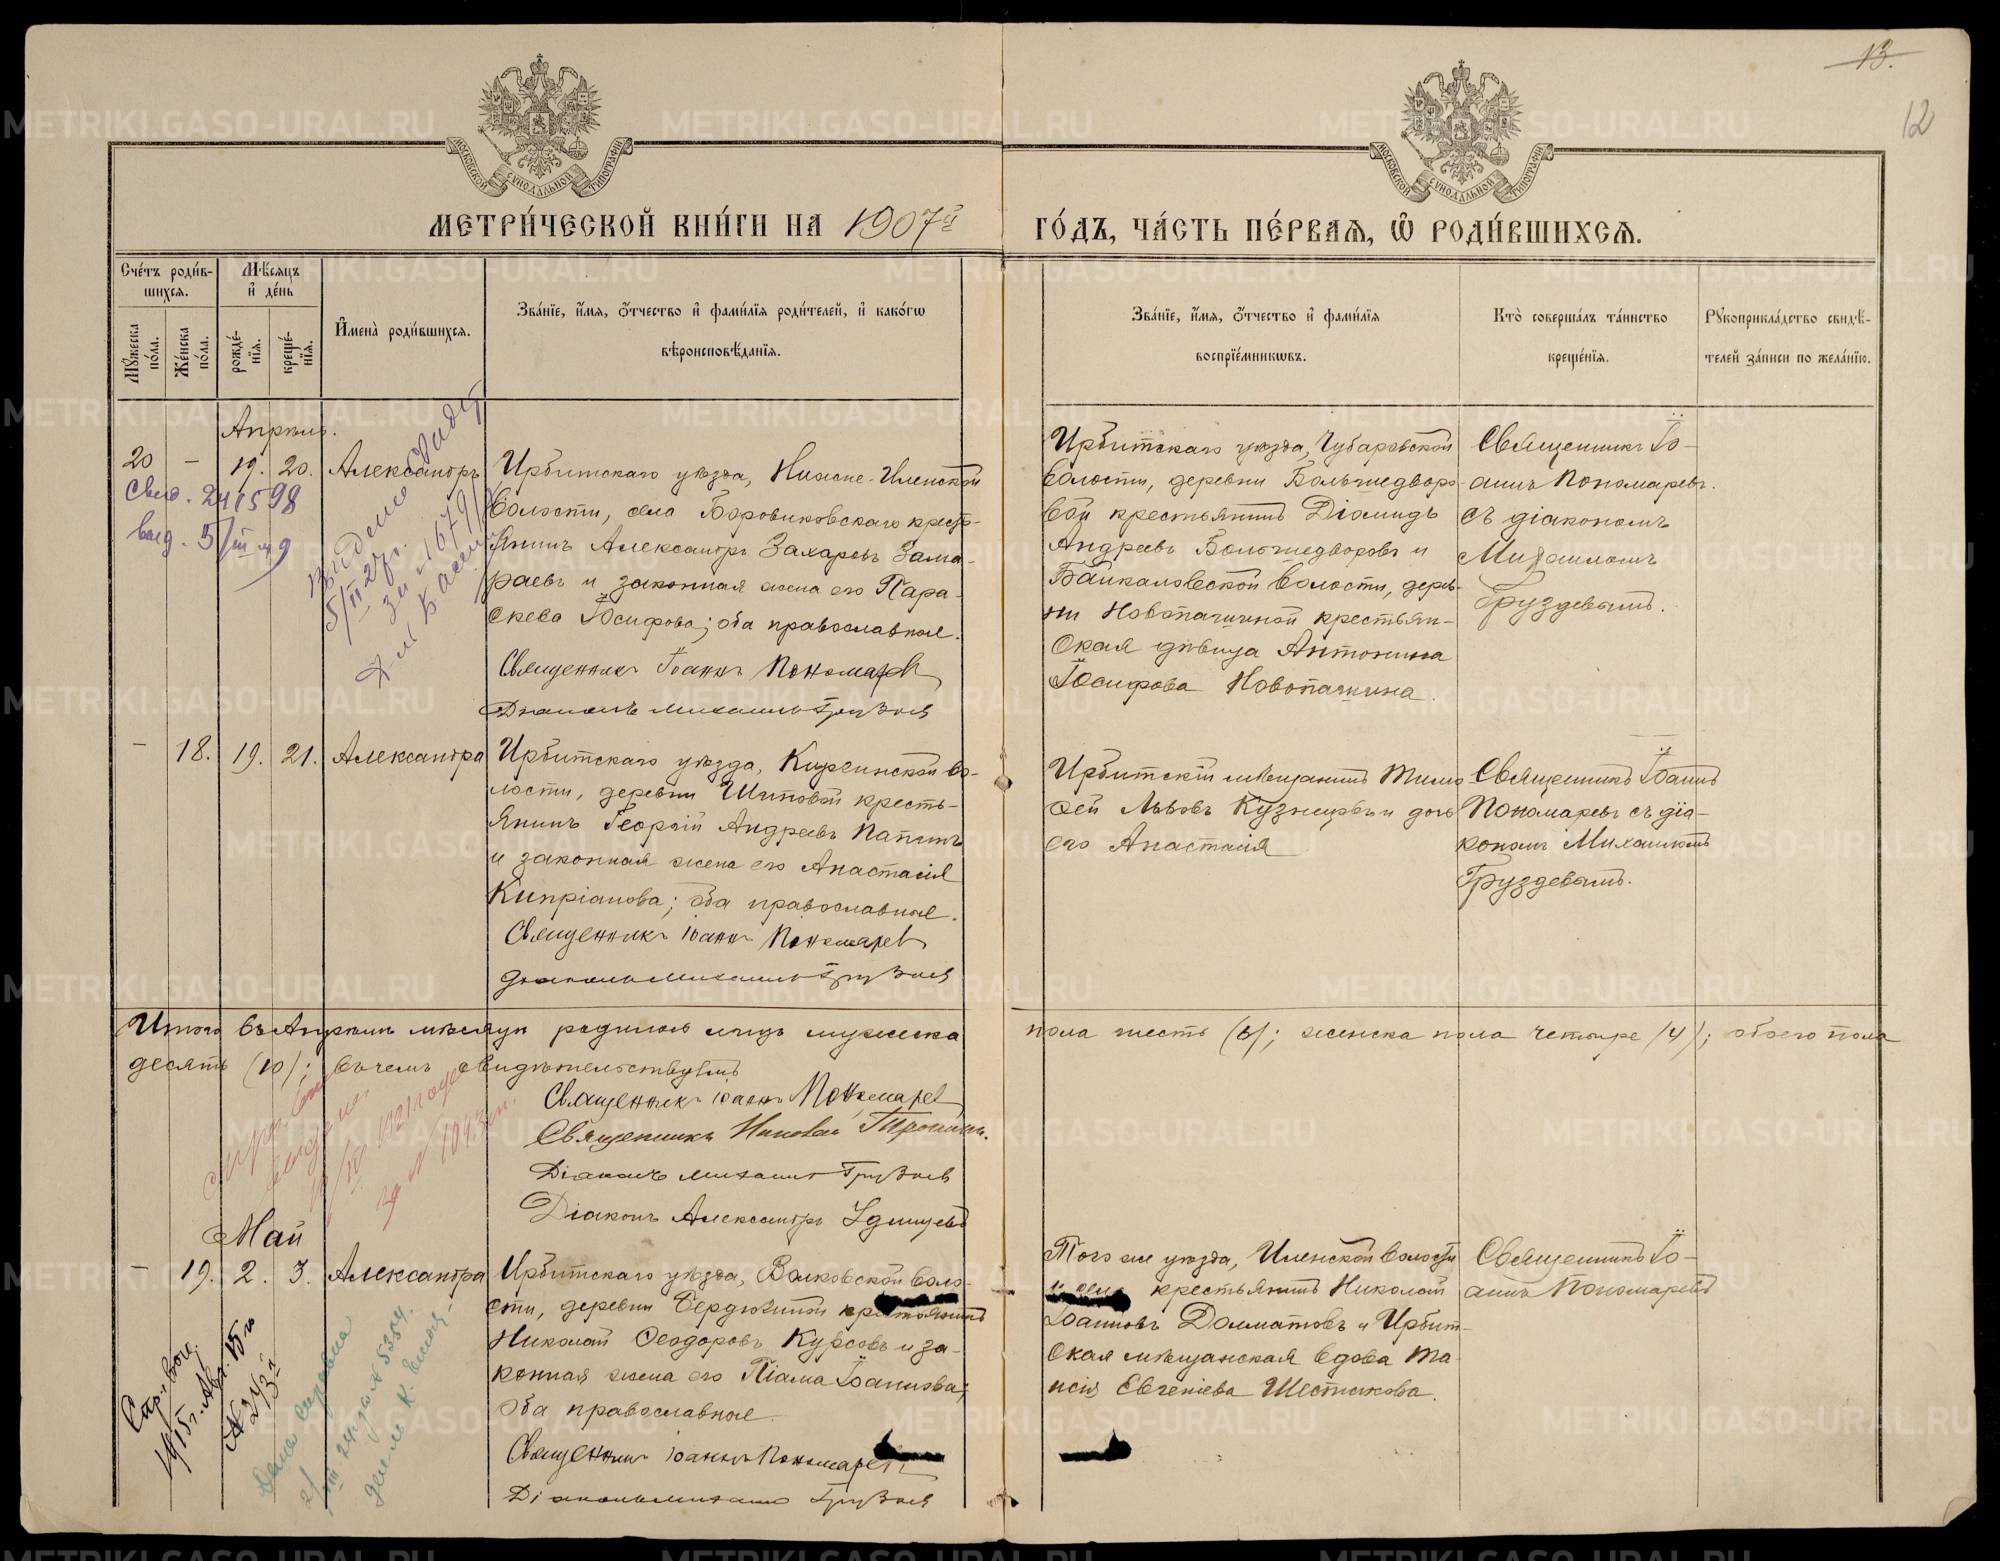 13.
12
МОСКОВСКОЙ СУНОДАЛЬНОЙ ТИПОГРАФІИ
МОСКОВСКОЙ СУНОДАЛЬНОЙ ТИПОГРАФІИ
МЕТРИ́ЧЕСКОЙ КНИ́ГИ НА 1907й
ГО́ДЪ, ЧА́СТЬ ПЕ́РВАѦ, Ѡ РОДИ́ВШИХСѦ.
Сче́тъ роди́в-
шихсѧ.
Мѣ́сѧцъ
и҆ де́нь
Мꙋ́жеска по́ла.
Же́нска по́ла.
рожде́-
нїѧ.
креще́-
нїѧ.
И҆мена̀ роди́вшихсѧ.
Зва́нїе, и҆́мѧ, ѻ҆́тчество и҆ фами́лїѧ роди́телей, и҆ како́гѡ
вѣроисповѣ́данїѧ.
Зва́нїе, и҆́мѧ, ѻ҆́тчество и҆ фами́лїѧ
воспрїе́мникѡвъ.
Кто̀ соверша́лъ та́инство
креще́нїѧ.
Рꙋкоприкла́дство свидѣ́-
телей за́писи по жела́нїю.
Апрѣль.
20 – 19. 20. Александръ
Свид. 241598
выд. 5/III
Ирбитскаго уѣзда, Ницспе-Иленской
волости, села Боровиковскаго кресть-
янинъ Александръ Захаровъ Зама-
раевъ и законная жена его Пара-
скева Іосифова; оба православные.
Священникъ Іоаннъ Пономаревъ
Діаконъ Михаилъ Груздевъ
Ирбитскаго уѣзда, Чубаровской
волости, деревни Большедворо-
вой крестьянинъ Діомидъ
Андреевъ Большедворовъ и
Байкаловской волости, дерев-
ни Новопашиной крестьян-
ская дѣвица Антонина
Іосифова Новопашина.
Священникъ Іо-
аннъ Пономаревъ
съ діакономъ
Михаиломъ
Груздевымъ.
– 18. 19. 21. Александра
Ирбитскаго уѣзда, Киргинской во-
лости, деревни Шиповой кресть-
янинъ Георгій Андреевъ Папинъ
и законная жена его Анастасія
Кипріанова; оба православные.
Священникъ Іоаннъ Пономаревъ
Діаконъ Михаилъ Груздевъ
Ирбитскій мѣщанинъ Тимо-
фей Львовъ Кузнецовъ и дочь
его Анастасія
Священникъ Іоаннъ
Пономаревъ съ діа-
кономъ Михаиломъ
Груздевымъ.
Итого въ Апрѣлѣ мѣсяцѣ родилось лицъ мужеска пола шесть (6); женска пола четыре (4); обоего пола
десять (10); въ чемъ свидѣтельствуемъ
Священникъ Іоаннъ Пономаревъ
Священникъ Николай
Діаконъ Михаилъ Груздевъ
Діаконъ Александръ Удинцевъ
Май
– 19. 2. 3. Александра
Ирбитскаго уѣзда, Волковской воло-
сти, деревни Бердюгиной крестьянинъ
Николай Ѳеодоровъ Курсовъ и за-
конная жена его Піама Іоаннова;
оба православные.
Священникъ Іоаннъ Пономаревъ
Діаконъ Михаилъ Груздевъ
Того же уѣзда, Иленской волости
и села крестьянинъ Николай
Іоанновъ Долматовъ и Ирбит-
ская мѣщанская вдова Та-
исія Евгеніева Шестакова.
Священникъ Іо-
аннъ Пономаревъ
METRIKI.GASO-URAL.RU